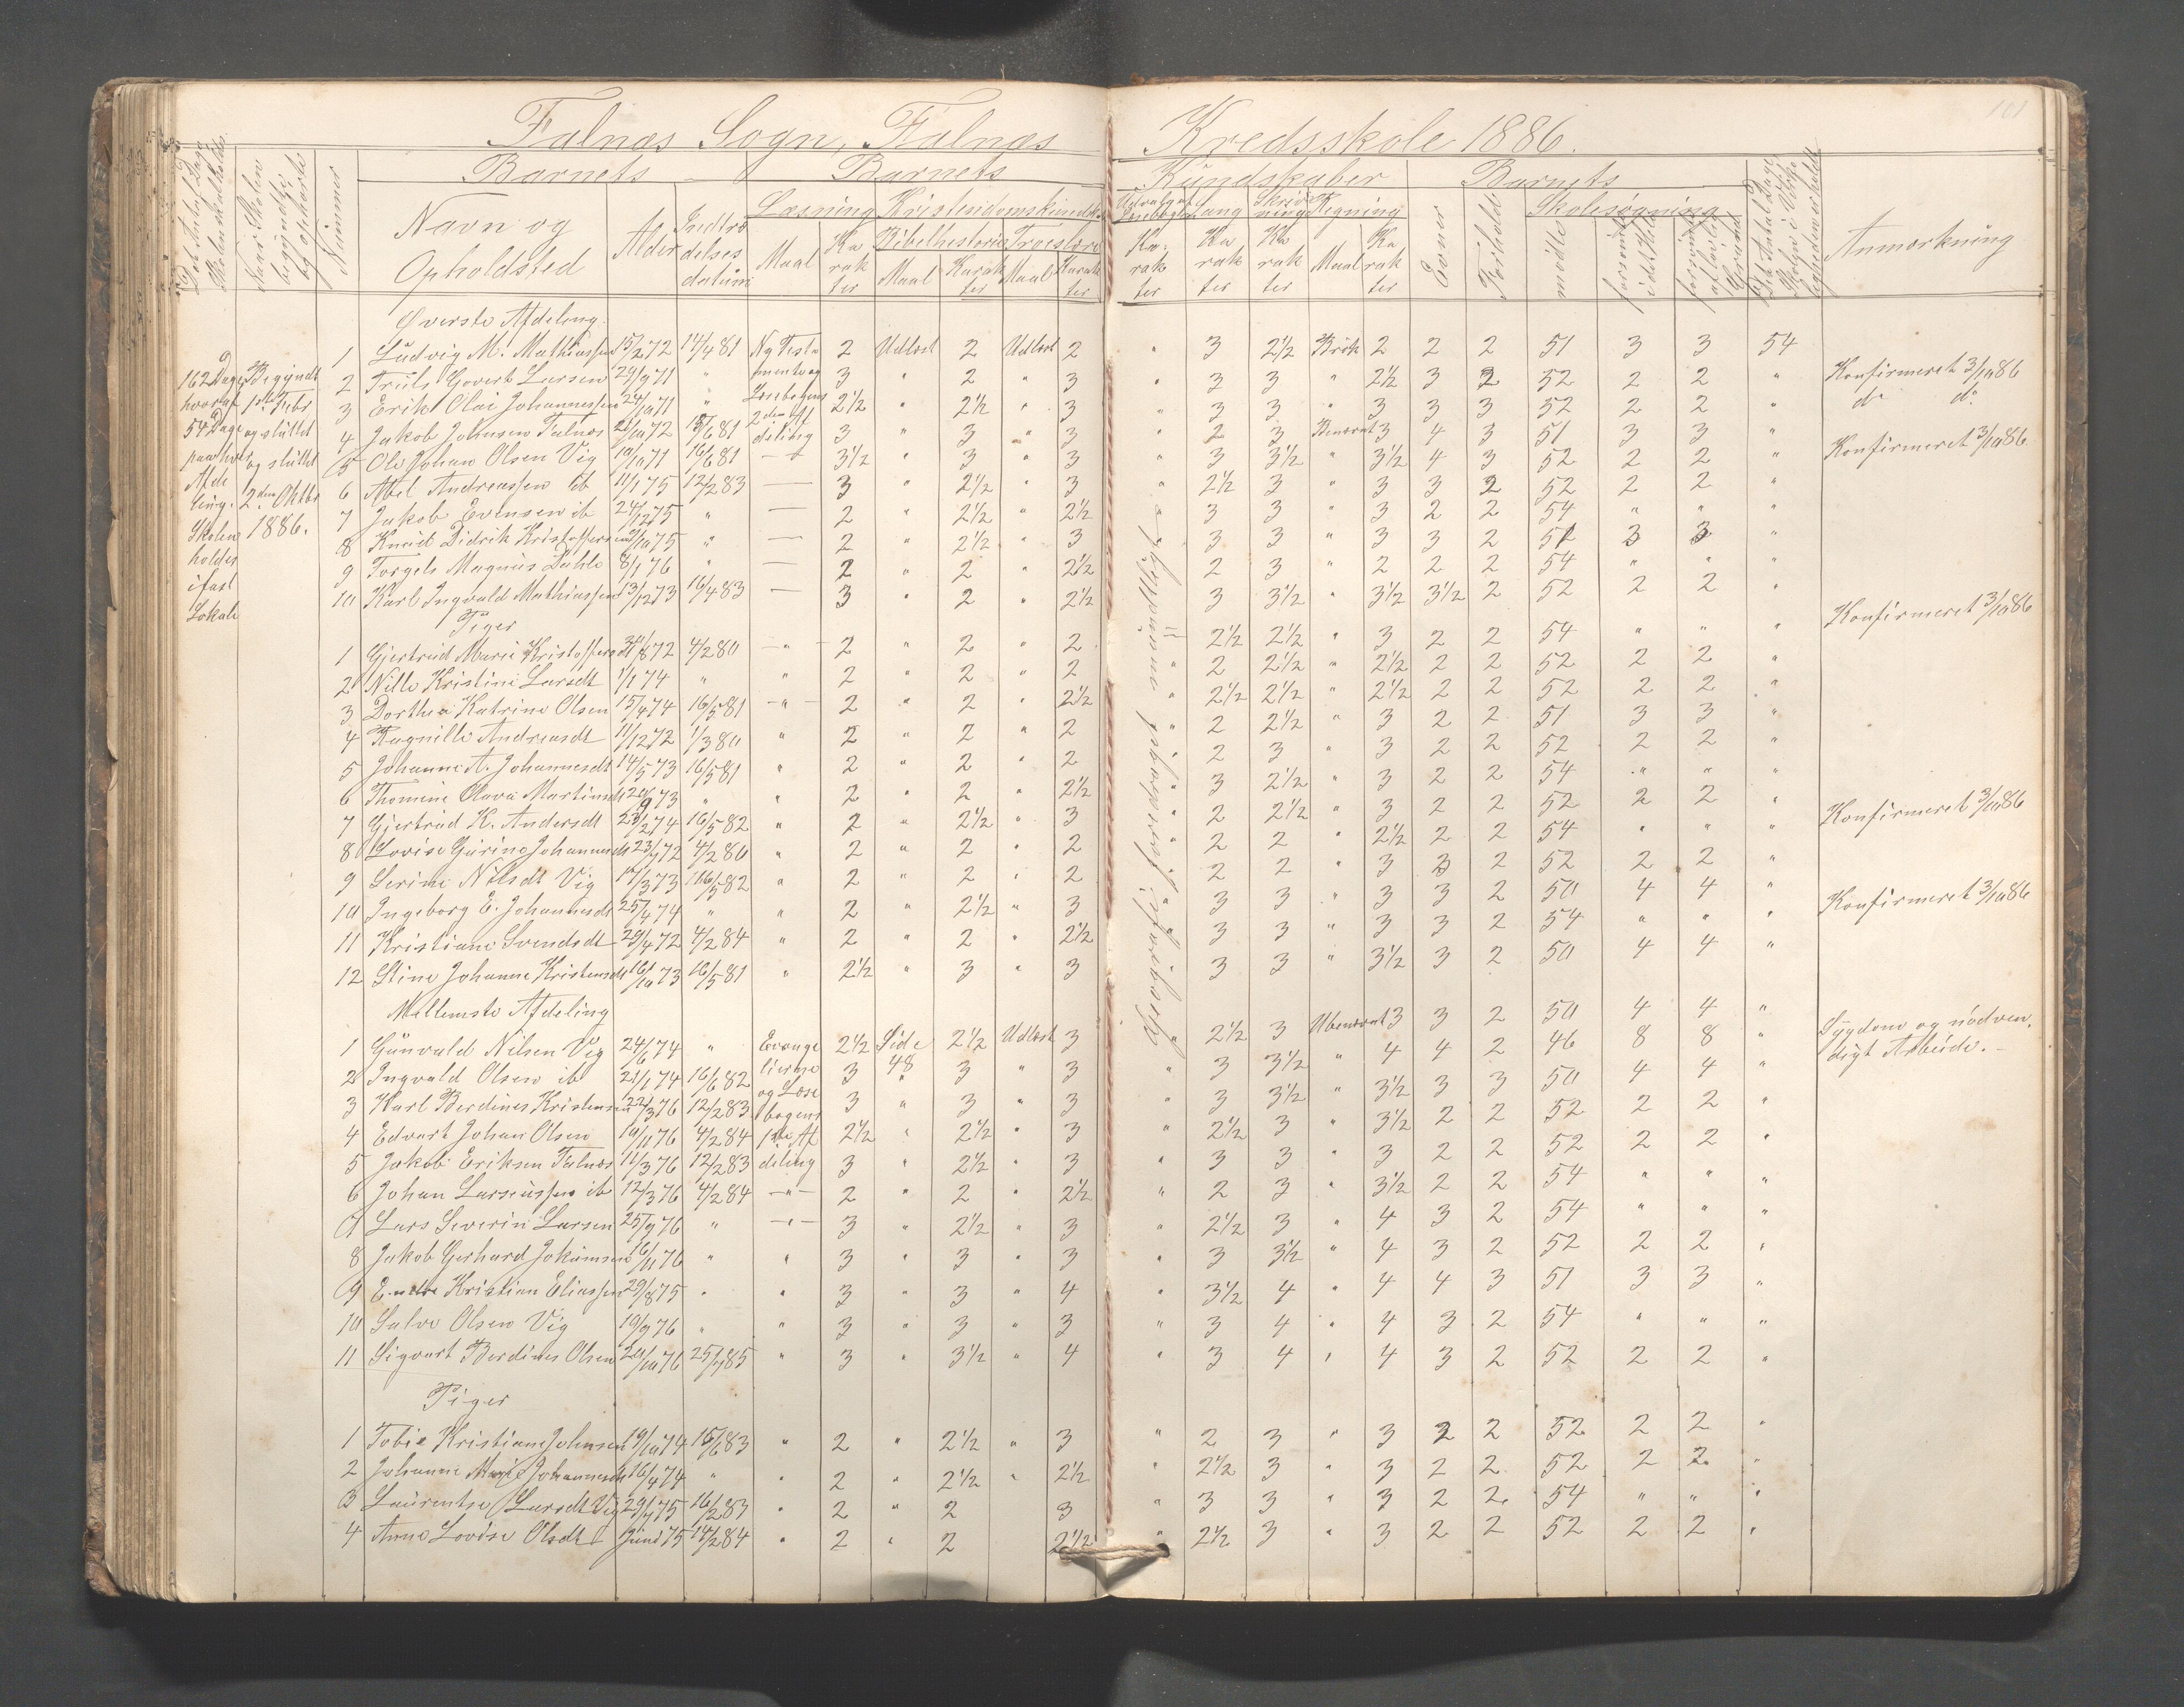 101
Falnæs Sogn, Falnæs Kredsskole 1886.
Barnets Barnets Kundskaber Barnets
Nummer Navn og Opholdsted Alder Indtrædelsesdatum Læsning Kristendomskundskab Sang Skrivning Regning Evner Forhold Skolesøgning Anmærkning
Bibelhistorie Troeslære
Maal Karakter Maal Karakter Maal Karakter Karakter Karakter Karakter Maal Karakter mödte forsömte i det Hele
162 Dage hvoraf 54 Dage paa hver Afdeling. Skolen holdes i fast Lokale
Begyndt 1ste Febr og sluttet og sluttet 2den Oktbr 1886.
Øverste Afdeling.
1 Ludvig M. Mathiassen 15/2 72 14/4 81 Ny Testa 2 Udlæst 2 Udlæst 2 " 3 2½ Brök 2 2 2 51 3 3 54
2 Truls Govert Larsen 29/9 71 " mente og 3 " 2 " 3 " 3 3 " 2½ 3 2 52 2 2 " Konfirmeret 3/10 86
3 Erik Olai Johannessen 24/10 71 " Læsebogens 2½ " 2½ " 3 " 3 3 " 3 3 3 52 2 2 " do do
4 Jakob Johnsen Falnæs 21/10 72 15/6 81 2den Af deling 3 " 3 " 3 " 2 3 Benævnt 3 4 3 51 3 3 "
5 Ole Johan Olsen Vig 10/10 71 16/6 81 3½ " 3 " 3 " 3 3½ " 3½ 4 3 52 2 2 " Konfirmeret 3/10 86
6 Abel Andreassen ib 11/1 75 12/2 83 — 3 " 2½ " 3 " 2½ 3 " 3 3 2 52 2 2 "
7 Jakob Evensen ib 24/12 75 " — 2 " 2½ " 2½ " 3 3 " 3 2 2 54 " " "
8 Knud Didrik Kristoffersen 2/10 75 " — 2 " 2½ " 3 3 3 " 3 3 2 51 3 3 "
9 Torgels Magnus Dahle 8/1 76 " — 2 " 2 " 2½ 2 3 " 2 2 2 54 " " "
10 Karl Ingvald Mathiassen 13/12 73 16/4 83 — 3 " 2 " 2½ 3 3½ " 3½ 3½ 2 52 2 2 "
Piger
1 Gjertrud Marie Kristoffersdt 31/8 72 4/2 80 — 2 " 2 " 2 2½ 2½ " 3 2 2 54 " " " Konfirmeret 3/10 86
2 Nille Kristine Larsdt 1/1 74 " " 2 " 2 " 2 " 2 2½ " 2½ 2 2 52 2 2 "
3 Dorthea Katrine Olsen 15/4 74 16/5 81 — 2 " 2 " 2½ " 2½ 2½ " 2½ 2 2 52 2 2 "
4 Ragnille Andreasdt 11/12 72 1/3 80 " 2 " 2 " 2 " 2 2½ " 3 2 2 51 3 3 "
5 Johanne A. Johannesdt 14/5 73 16/5 81 " 2 " 2 " 2 " 2 3 " 3 2 2 52 2 2 "
6 Thomine Olava Martinsdt 20/9 73 " " 2 " 2 " 2½ " 3 2½ " 3 2 2 54 " " "
7 Gjertrud K. Andersdt 23/2 74 16/5 82 " 2 " 2½ " 3 " 2 2½ " 3 2 2 52 2 2 "
8 Lovise Gurine Johannesdt 23/7 72 4/2 80 " 2 " 2 " 2 " 2 2 " 2½ 2 2 54 " " " Konfirmeret 3/10 86
9 Serine Nilsdt Vig 17/3 73 16/5 82 " 2 " 2 " 2 " 2 2 " 3 3 2 52 2 2 "
10 Ingeborg E. Johannesdt 25/4 74 " " 2 " 2½ " 3 " 3 3 " 3 3 2 50 4 4 "
11 Kristiane Svendsdt 29/4 72 4/2 84 " 2 " 2 " 2½ " 3 3 " 3 3 2 54 " " " Konfirmeret 3/10 86
12 Stine Johanne Kristensdt 16/10 73 16/5 81 " 2½ " 3 " 3 3 3 " 3½ 3 2 50 4 4 "
Mellemste Afdeling
1 Gunvald Nilsen Vig 24/6 74 " Evange 2½ Side 48 2½ Udlæst 3 " 2½ 3 Ubenævnt 3 3 2 50 4 4 "
2 Ingvald Olsen ib 21/1 74 16/6 82 lierne 3 " 3 " 3 " 3 3½ " 4 4 2 46 8 8 " Sygdom og nödvendigt Arbeide.
3 Karl Berdines Kristensen 22/3 76 12/2 83 og Læse bogens 3 " 3 " 3 " 3 3½ " 3½ 3 3 50 4 4 "
4 Edvart Johan Olsen 10/11 76 4/2 84 1ste Af 2½ " 2½ " 3 " 2½ 3 " 3½ 2 2 52 2 2 "
5 Jakob Eriksen Falnæs 11/3 76 12/2 83 deling 3 " 2½ " 3 " 3 3 " 3 2 2 52 2 2 "
6 Johan Larseussen ib 12/3 76 4/2 84 — " — 2 " 2 " 2½ " 2 3 " 3½ 2 2 54 " " "
7 Lars Severin Larsen 25/9 76 " — " — 3 " 2½ " 3 " 2½ 3 " 4 3 2 54 " " "
8 Jakob Gerhard Jokumsen 16/11 76 " " 3 " 3 " 3 " 3 3½ " 4 3 2 52 2 2 "
9 Kristian Eliassen 29/8 75 " " 3 " 3 " 4 " 3½ 4 " 4 4 3 51 3 3 "
10 Salve Olsen Vig 19/9 76 " " 3 " 3 " 3 " 3 4 " 4 3 2 54 " " "
11 Sigvart Berdines Olsen 20/10 76 25/7 85 " 3 " 3½ " 4 " 3 4 " 4 3 2 52 2 2 "
Piger
1 Tobie Kristiane Johnsen 19/10 74 15/6 83 " 2 " 2½ " 3 " 2 3 " 3 2 2 52 2 2 "
2 Johanne Marie Johannesdt 16/4 74 " " 2 " 2½ " 2½ " 2½ 3 " 3 2 2 52 2 2 "
3 Laurentse Larsdt Vig 29/7 75 16/2 83 " 2 " 2 3 " 3 3 " 3 2 2 54 " " "
4 Anne Lovise Olsdt Juni 75 14/2 84 " 2 " 2 2½ " 2½ 3 " 3 2 2 52 2 2 "